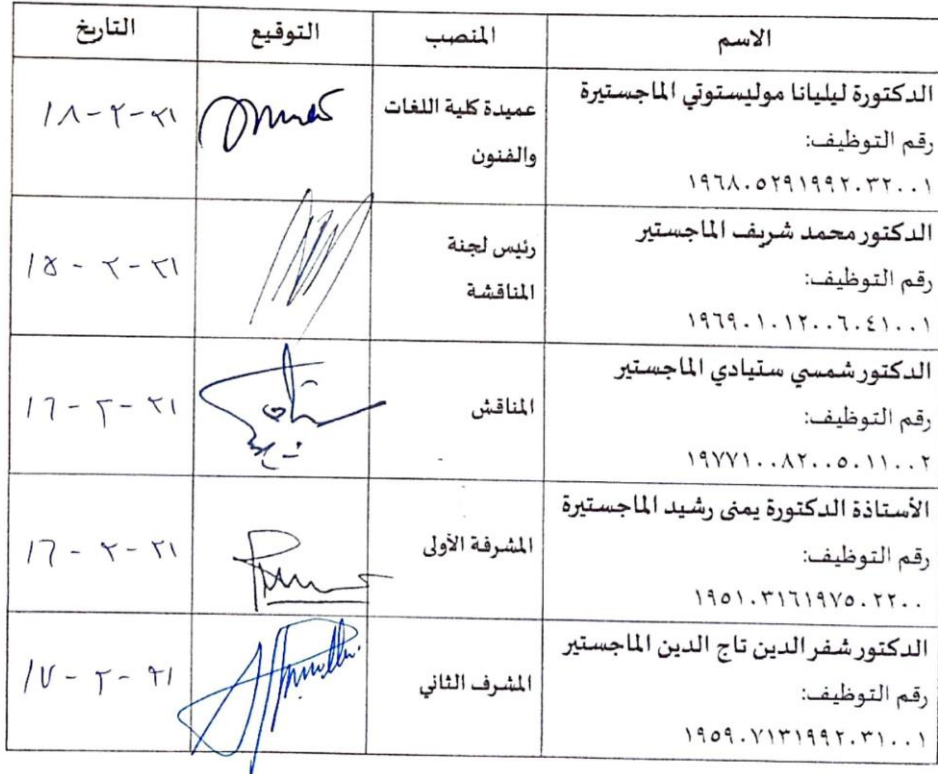 الاسم المنصب التوقيع التاريخ
الدكتورة ليليانا موليستوتي الماجستيرة
رقم التوظيف:
١٩٦٨٠٥٢٩١٩٩٢٠٣٢٠٠١
عميدة كلية اللغات
والفنون
١٨-٢-٢١
الدكتور محمد شريف الماجستير
رقم التوظيف:
١٩٦٩٠١٠١٢٠٠٦٠٤١٠٠١
رئيس لجنة
المناقشة
١٥-٢-٢١
الدكتور شمسي ستيادي الماجستير
رقم التوظيف:
١٩٧٧١٠٠٨٢٠٠٥٠١١٠٠٢
المناقش
١٦-٢-٢١
الأستاذة الدكتورة يمنى رشيد الماجستيرة
رقم التوظيف:
١٩٥١٠٣١٦١٩٧٥٠٢٢٠٠
المشرفة الأولى
١٦-٢-٢١
الدكتور شفر الدين تاج الدين الماجستير
رقم التوظيف:
١٩٥٩٠٧١٣١٩٩٢٠٣١٠٠١
المشرف الثاني
١٧-٢-٢١